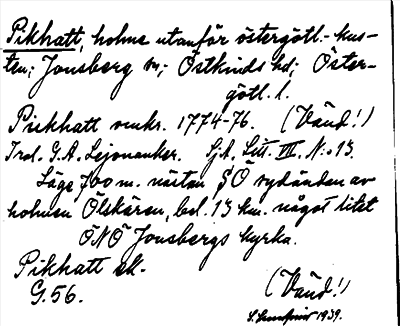 Pikhatt, holme utanför östergötl.-kus-
ten; Jonsberg sn; Östkinds hd; Öster-
götl. l.
Pickhatt omkr. 1774-76. (Vänd!)
Trol. G. A. Leijonanker. Sj.A. Litt. VII. N:o 13.
Läge 700 m. nästan SÖ sydändan av
holmen Ölskären, bel. 13 km. något litet
ÖNÖ Jonsbergs kyrka.
Pikhatt ek.
G. 56. (Vänd!)
1939.